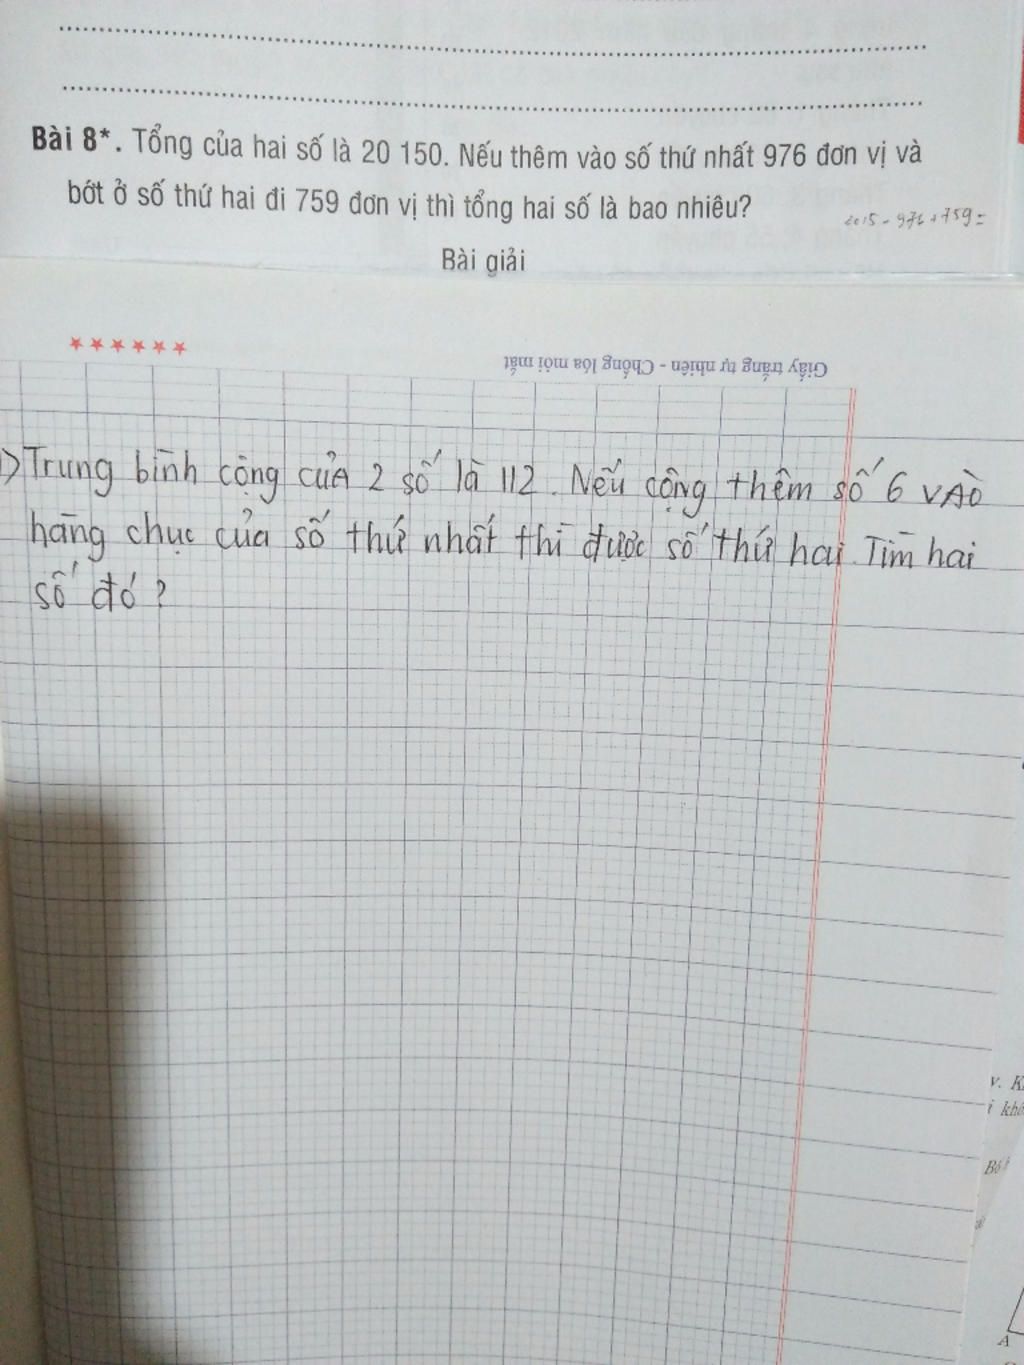 Bài 8*. Tổng của hai số là 20 150. Nếu thêm vào số thứ nhất 976 đơn vị và
bớt ở số thứ hai đi 759 đơn vị thì tổng hai số là bao nhiêu?
2015 - 976 + 759 =
Bài giải
Giấy trắng tự nhiên - Chống lóa mỏi mắt
1) Trung bình cộng của 2 số là 112. Nếu cộng thêm số 6 vào
hàng chục của số thứ nhất thì được số thứ hai. Tìm hai
số đó?
v. K
i khô
A